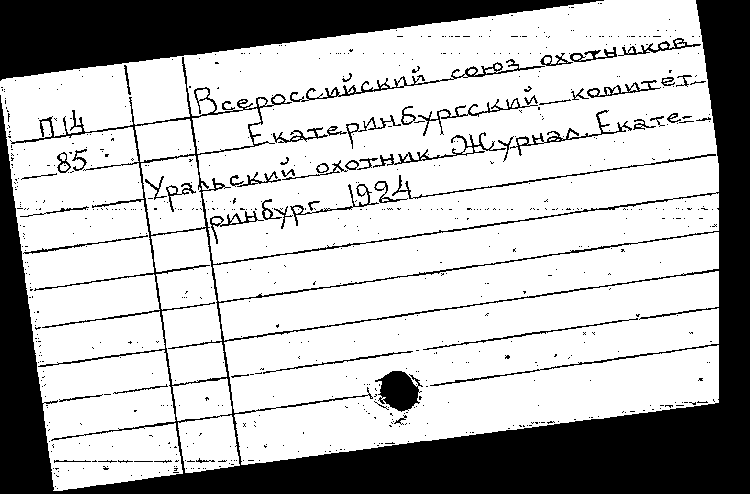 П14
85
Всероссийский союз охотников
Екатеринбургский комитет
Уральский охотник. Журнал. Екате-
ринбург. 1924